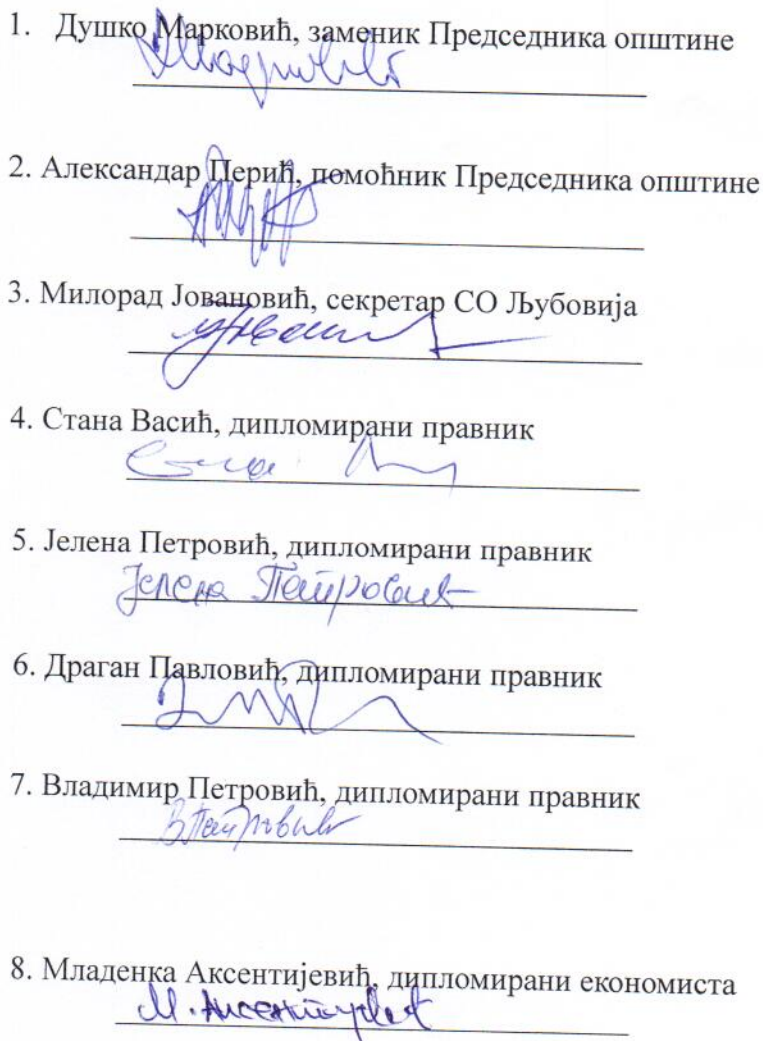 1. Душко Марковић, заменик Председника општине
2. Александар Перић, помоћник Председника општине
3. Милорад Јовановић, секретар СО Љубовија
4. Стана Васић, дипломирани правник
5. Јелена Петровић, дипломирани правник
Јелена Петровић
6. Драган Павловић, дипломирани правник
7. Владимир Петровић, дипломирани правник
ВПетровић
8. Младенка Аксентијевић, дипломирани економиста
М. Аксентијевић